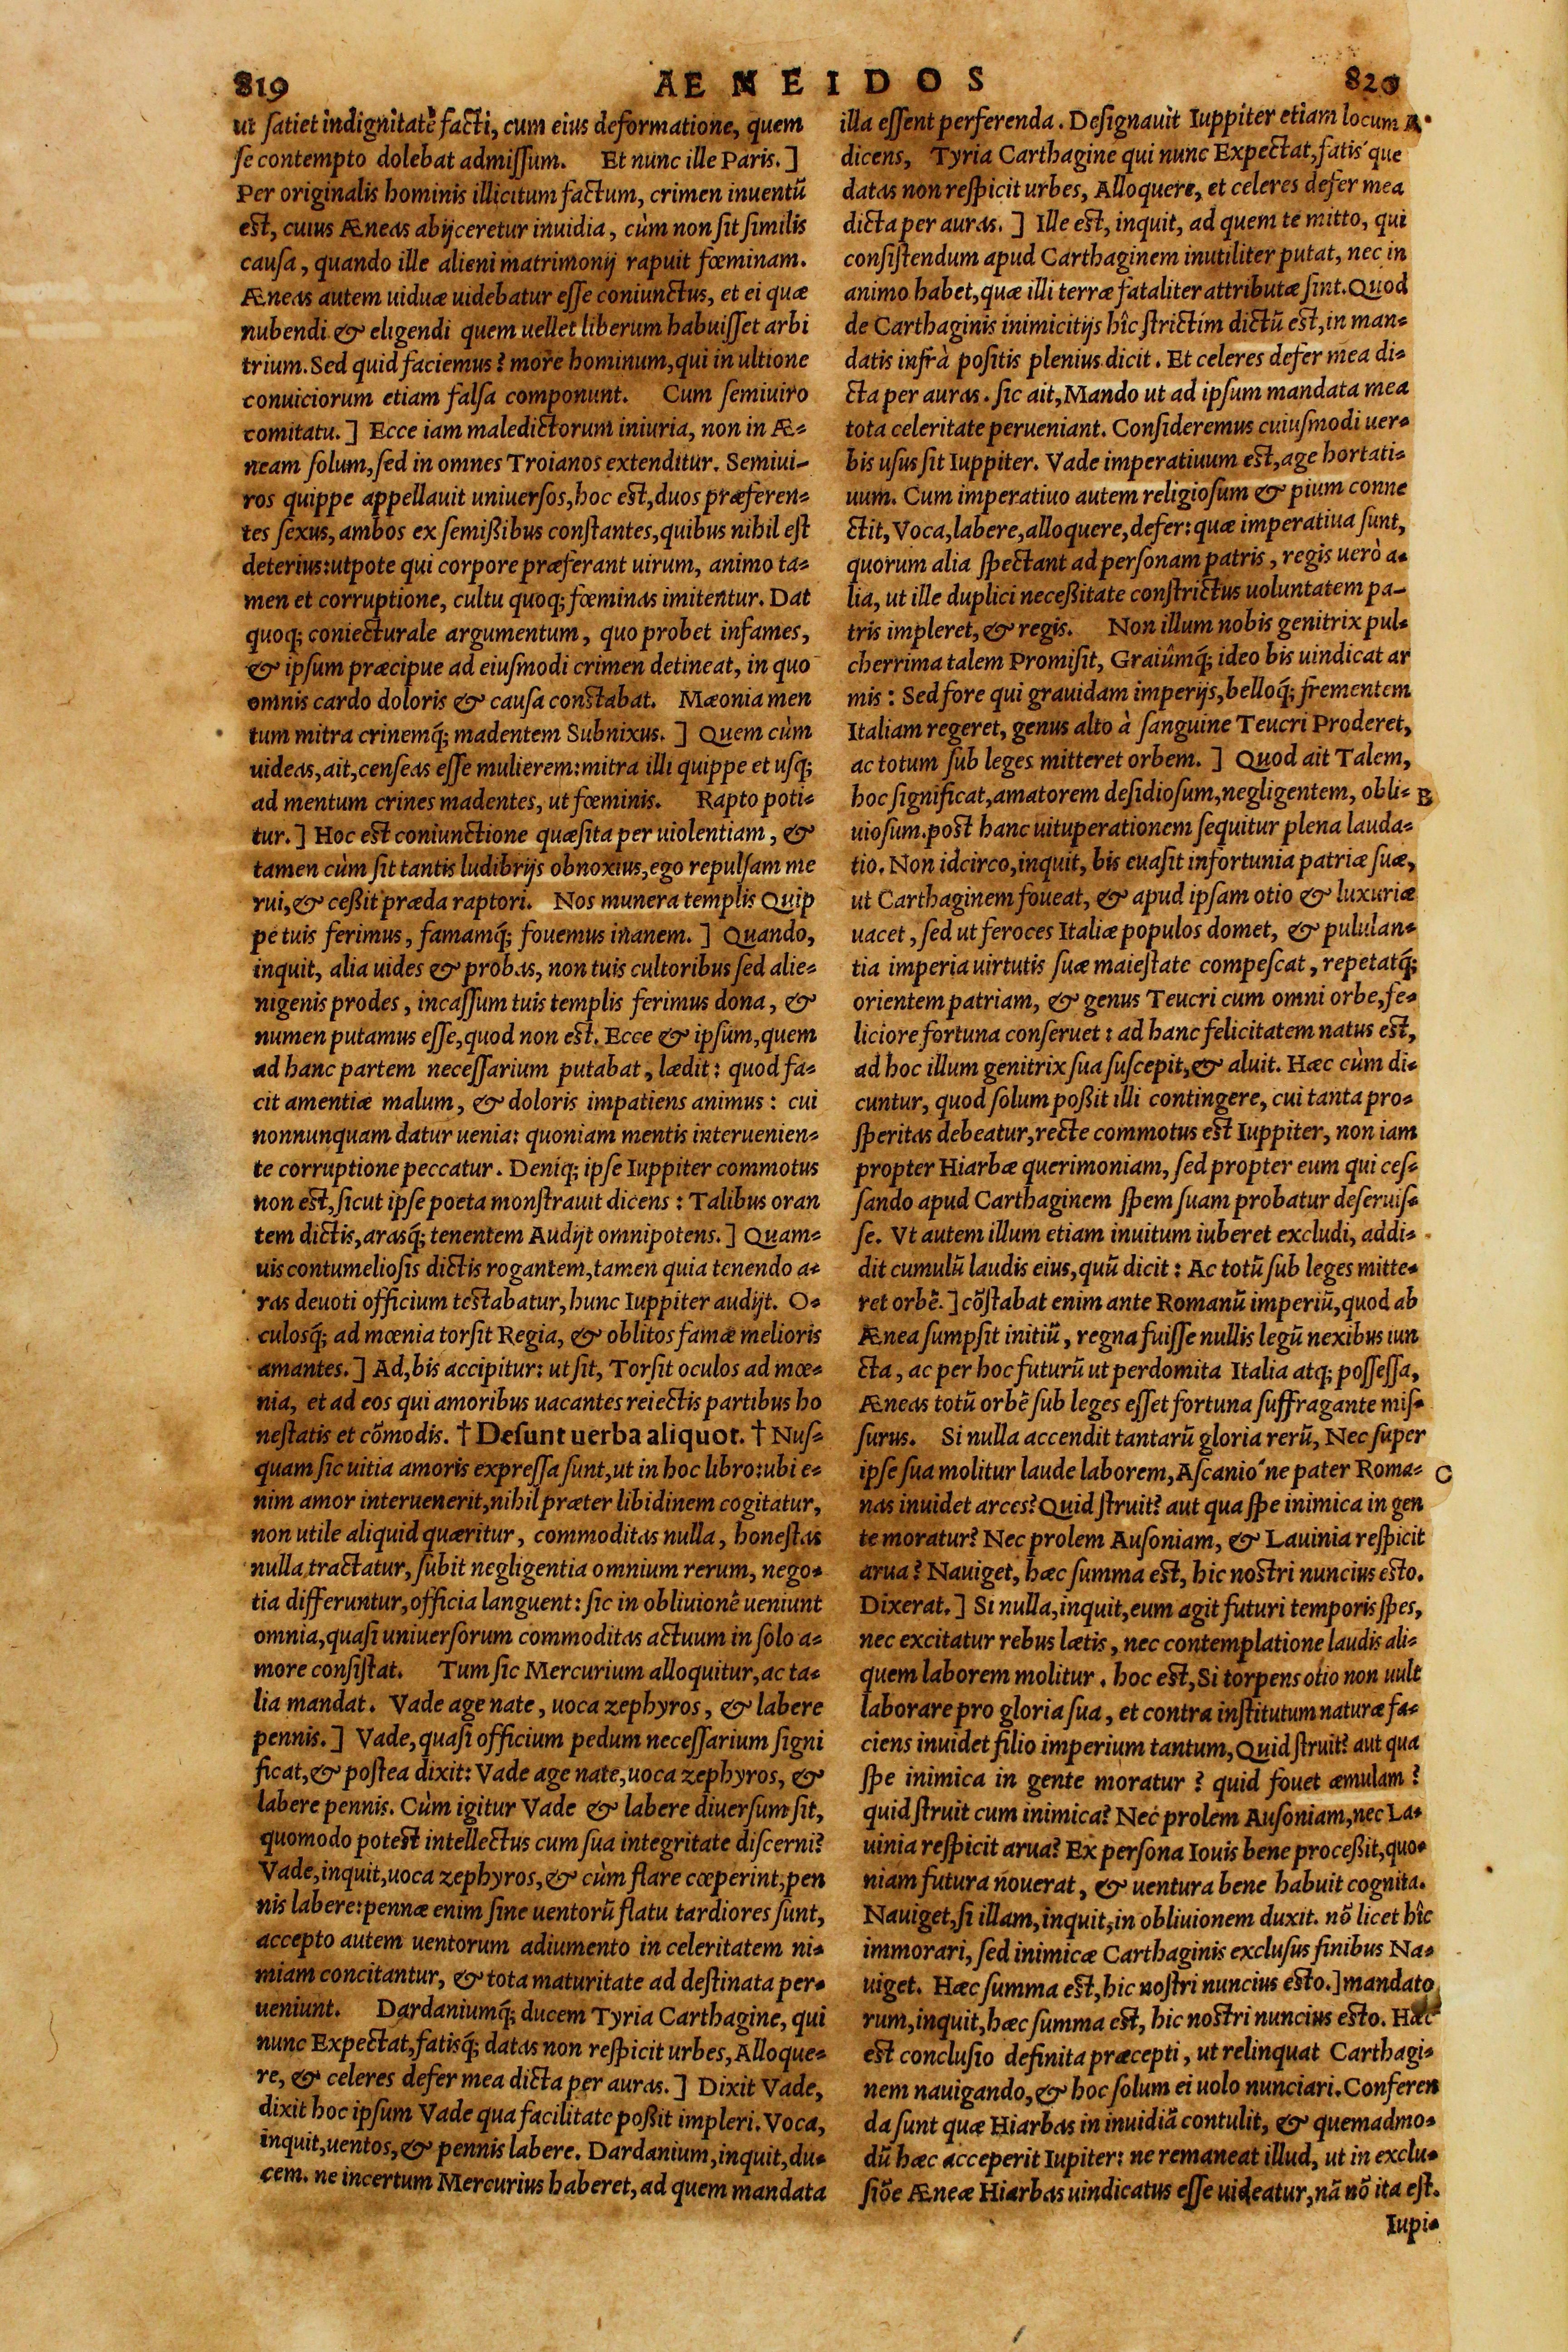 819
AENEIDOS
820
ut satiet indignitatẽ facti, cum eius deformatione, quem
se contempto dolebat admissum. Et nunc ille Paris.]
Per originalis hominis illicitum factum, crimen inuentũ
est, cuius Æneas abijceretur inuidia, cùm non sit similis
causa, quando ille alieni matrimonij rapuit fœminam.
Æneas autem uiduæ uidebatur esse coniunctus, et ei quæ
nubendi & eligendi quem uellet liberum habuisset arbi
trium. Sed quid faciemus? more hominum, qui in ultione
conuiciorum etiam falsa componunt. Cum semiuiro
comitatu.] Ecce iam maledictorum iniuria, non in Æ-
neam solum, sed in omnes Troianos extenditur. Semiui-
ros quippe appellauit uniuersos, hoc est, duos præferen-
tes sexus, ambos ex semißibus constantes, quibus nihil est
deterius: utpote qui corpore præferant uirum, animo ta-
men et corruptione, cultu quoq; fœminas imitentur. Dat
quoq; coniecturale argumentum, quo probet infames,
& ipsum præcipue ad eiusmodi crimen detineat, in quo
omnis cardo doloris & causa constabat. Mæonia men
tum mitra crinemq́; madentem Subnixus.] Quem cùm
uideas, ait, censeas esse mulierem: mitra illi quippe et usq;
ad mentum crines madentes, ut fœminis. Rapto poti-
tur.] Hoc est coniunctione quæsita per uiolentiam, &
tamen cùm sit tantis ludibrijs obnoxius, ego repulsam me
rui, & ceßit præda raptori. Nos munera templis Quip
pe tuis ferimus, famamq́; fouemus inanem.] Quando,
inquit, alia uides & probas, non tuis cultoribus sed alie-
nigenis prodes, incassum tuis templis ferimus dona, &
numen putamus esse, quod non est. Ecce & ipsum, quem
ad hanc partem necessarium putabat, lædit: quod fa-
cit amentiæ malum, & doloris impatiens animus: cui
nonnunquam datur uenia: quoniam mentis interuenien-
te corruptione peccatur. Deniq; ipse Iuppiter commotus
non est, sicut ipse poeta monstrauit dicens: Talibus oran
tem dictis, arasq́; tenentem Audijt omnipotens.] Quam-
uis contumeliosis dictis rogantem, tamen quia tenendo a-
ras deuoti officium testabatur, hunc Iuppiter audijt. O-
culosq́; ad mœnia torsit Regia, & oblitos famæ melioris
amantes.] Ad, bis accipitur: ut sit, Torsit oculos ad mœ-
nia, et ad eos qui amoribus uacantes reiectis partibus ho
nestatis et cõmodis. † Desunt uerba aliquot. † Nus-
quam sic uitia amoris expressa sunt, ut in hoc libro: ubi e-
nim amor interuenerit, nihil præter libidinem cogitatur,
non utile aliquid quæritur, commoditas nulla, honestas
nulla tractatur, subit negligentia omnium rerum, nego-
tia differuntur, officia languent: sic in obliuionẽ ueniunt
omnia, quasi uniuersorum commoditas actuum in solo a-
more consistat. Tum sic Mercurium alloquitur, ac ta-
lia mandat. Vade age nate, uoca zephyros, & labere
pennis.] Vade, quasi officium pedum necessarium signi
ficat, & postea dixit: Vade age nate, uoca zephyros, &
labere pennis. Cùm igitur Vade & labere diuersum sit,
quomodo potest intellectus cum sua integritate discerni?
Vade, inquit, uoca zephyros, & cùm flare cœperint, pen
nis labere: pennæ enim sine uentorũ flatu tardiores sunt,
accepto autem uentorum adiumento in celeritatem ni-
miam concitantur, & tota maturitate ad destinata per-
ueniunt. Dardaniumq́; ducem Tyria Carthagine, qui
nunc Expectat, fatisq́; datas non respicit urbes, Alloque-
re, & celeres defer mea dicta per auras.] Dixit Vade,
dixit hoc ipsum Vade qua facilitate poßit impleri. Voca,
inquit, uentos, & pennis labere. Dardanium, inquit, du-
cem. ne incertum Mercurius haberet, ad quem mandata
illa essent perferenda. Designauit Iuppiter etiam locum A
dicens, Tyria Carthagine qui nunc Expectat, fatis´que
datas non respicit urbes, Alloquere, et celeres defer mea
dicta per auras.] Ille est, inquit, ad quem te mitto, qui
consistendum apud Carthaginem inutiliter putat, nec in
animo habet, quæ illi terræ fataliter attributæ sint. Quod
de Carthaginis inimicitijs hîc strictim dictũ est, in man-
datis infrà positis plenius dicit. Et celeres defer mea di-
cta per auras. sic ait, Mando ut ad ipsum mandata mea
tota celeritate perueniant. Consideremus cuiusmodi uer-
bis usus sit Iuppiter. Vade imperatiuum est, age hortati-
uum. Cum imperatiuo autem religiosum & pium conne
ctit, Voca, labere, alloquere, defer: quæ imperatiua sunt,
quorum alia spectant ad personam patris, regis uerò a-
lia, ut ille duplici neceßitate constrictus uoluntatem pa-
tris impleret, & regis. Non illum nobis genitrix pul-
cherrima talem Promisit, Graiûmq́; ideo bis uindicat ar
mis: Sed fore qui grauidam imperijs, belloq́; frementem
Italiam regeret, genus alto à sanguine Teucri Proderet,
ac totum sub leges mitteret orbem.] Quod ait Talem,
hoc significat, amatorem desidiosum, negligentem, obli- B
uiosum. post hanc uituperationem sequitur plena lauda-
tio. Non idcirco, inquit, bis euasit infortunia patriæ suæ,
ut Carthaginem foueat, & apud ipsam otio & luxuriæ
uacet, sed ut feroces Italiæ populos domet, & pululan-
tia imperia uirtutis suæ maiestate compescat, repetatq́;
orientem patriam, & genus Teucri cum omni orbe, fe-
liciore fortuna conseruet: ad hanc felicitatem natus est,
ad hoc illum genitrix sua suscepit, & aluit. Hæc cùm di-
cuntur, quod solum poßit illi contingere, cui tanta pro-
speritas debeatur, recte commotus est Iuppiter, non iam
propter Hiarbæ querimoniam, sed propter eum qui ces-
sando apud Carthaginem spem suam probatur deseruis-
se. Vt autem illum etiam inuitum iuberet excludi, addi-
dit cumulũ laudis eius, quũ dicit: Ac totũ sub leges mitte-
ret orbẽ.] cõstabat enim ante Romanũ imperiũ, quod ab
Ænea sumpsit initiũ, regna fuisse nullis legũ nexibus iun
cta, ac per hoc futurũ ut perdomita Italia atq; possessa,
Æneas totũ orbẽ sub leges esset fortuna suffragante mis-
surus. Si nulla accendit tantarũ gloria rerũ, Nec super
ipse sua molitur laude laborem, Ascanio´ne pater Roma- C
nas inuidet arces? Quid struit? aut qua spe inimica in gen
te moratur? Nec prolem Ausoniam, & Lauinia respicit
arua? Nauiget, hæc summa est, hic nostri nuncius esto.
Dixerat.] Si nulla, inquit, eum agit futuri temporis spes,
nec excitatur rebus lætis, nec contemplatione laudis ali-
quem laborem molitur. hoc est, Si torpens otio non uult
laborare pro gloria sua, et contra institutum naturæ fa-
ciens inuidet filio imperium tantum, Quid struit? aut qua
spe inimica in gente moratur? quid fouet æmulam?
quid struit cum inimica? Nec prolem Ausoniam, nec La-
uinia respicit arua? Ex persona Iouis bene proceßit, quo-
niam futura nouerat, & uentura bene habuit cognita.
Nauiget, si illam, inquit, in obliuionem duxit. nõ licet hîc
immorari, sed inimicæ Carthaginis exclusus finibus Na-
uiget. Hæc summa est, hic nostri nuncius esto.] mandato
rum, inquit, hæc summa est, hic nostri nuncius esto. Hæc
est conclusio definita præcepti, ut relinquat Carthagi-
nem nauigando, & hoc solum ei uolo nunciari. Conferen
da sunt quæ Hiarbas in inuidiã contulit, & quemadmo-
dũ hæc acceperit Iupiter: ne remaneat illud, ut in exclu-
siõe Æneæ Hiarbas uindicatus esse uideatur, nã nõ ita est.
Iupi-